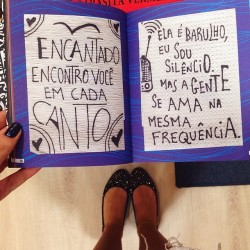 ENCANTADO
ENCONTRO VOCÊ
EM CADA
CANTO
ELA É BARULHO,
EU SOU
SILÊNCIO.
MAS A GENTE
SE AMA NA
MESMA
FREQUÊNCIA.